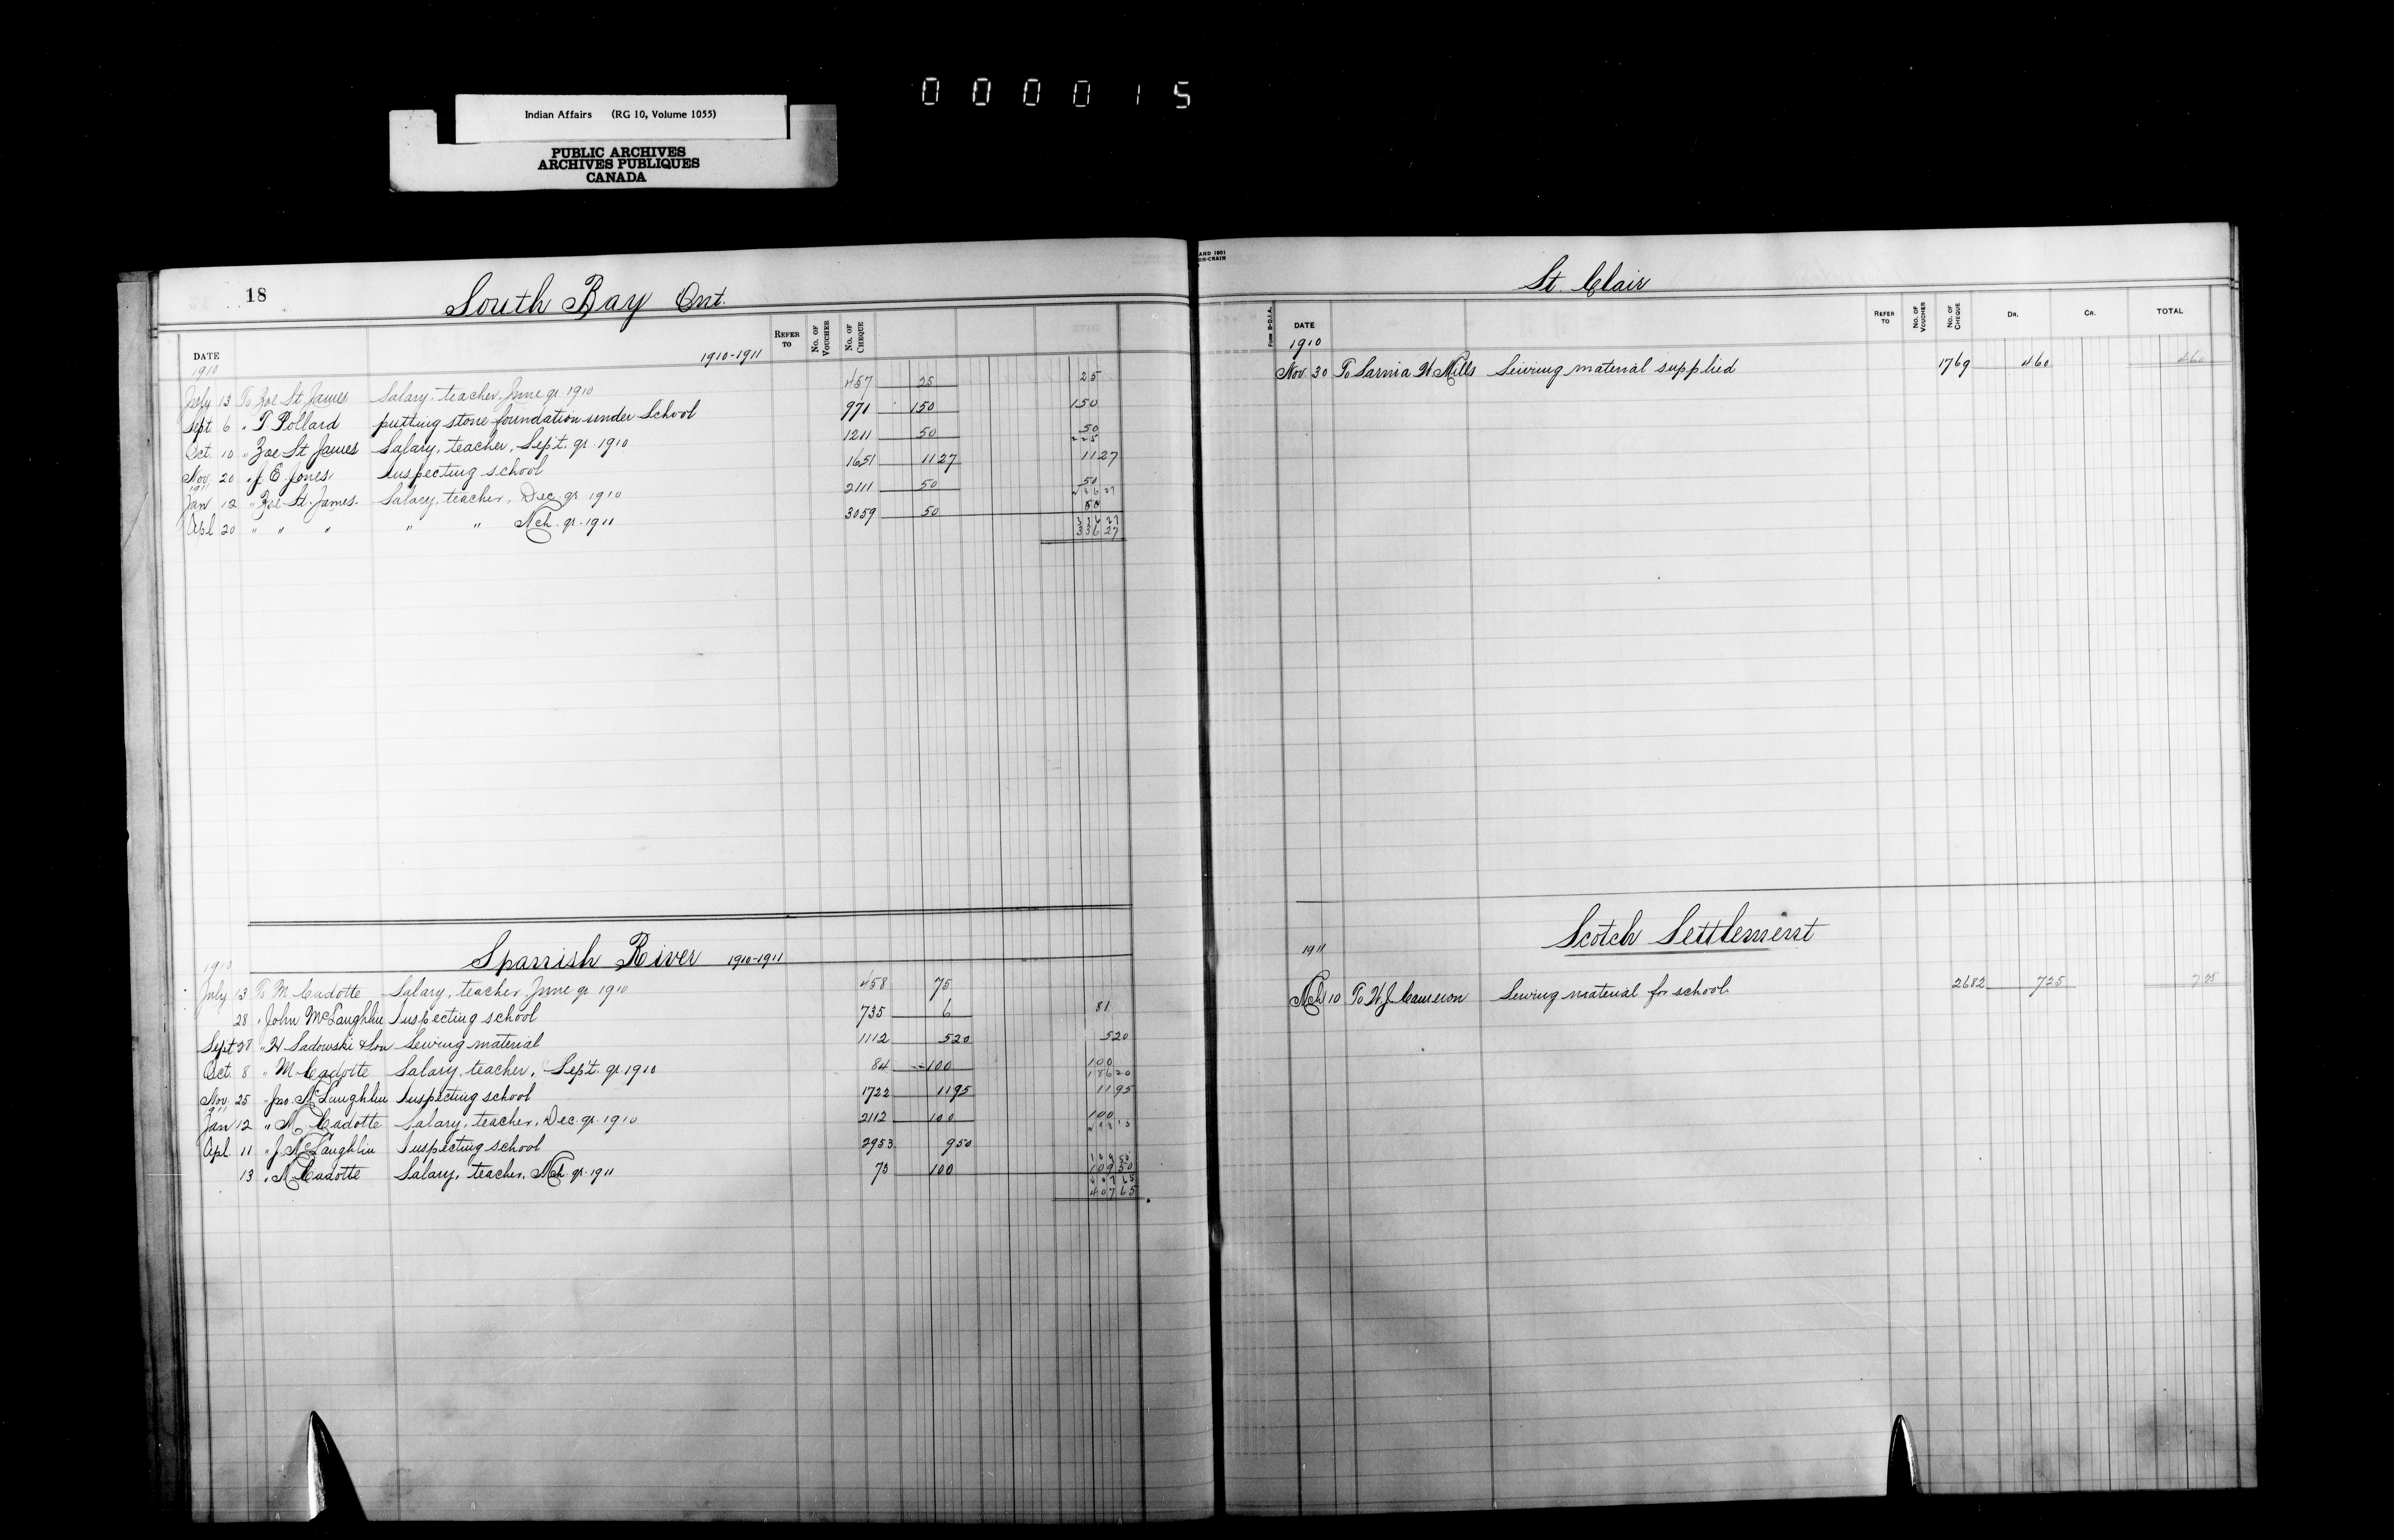 000015
Indian Affairs (RG 10, Volume 1055)
PUBLIC ARCHIVES
ARCHIVES PUBLIQUES
CANADA
18
South Bay Ont.
DATE REFER TO No. OF VOUCHER No. OF CHEQUE
1910 1910-1911
July 13 To Zoe St James Salary, teacher, June qr 1910 457 25 25
Sept. 6 " T. Pollard putting stone foundation under School 971 150 150
Oct. 10 " Zoe St James Salary, teacher, Sept. qr. 1910 1211 50 50
225
Nov. 20 " J. E. Jones Inspecting school 1651 1127 1127
1911
Jan 12 " Zoe St. James. Salary, teacher, Dec. qr. 1910 2111 50 50
Apl 20 " " " " " Mch. qr. 1911 3059 50 50
336 27
336 27
Spanish River 1910-1911
1910
July 13 To M Cadotte Salary, teacher June qr 1910 458 75
28 " John McLaughlin Inspecting school 735 6 81
Sept 28 " H Sadowski & Son Sewing material 1112 520 520
Oct. 8 " M Cadotte Salary, teacher, Sept. qr 1910 84 100 100
18620
Nov. 25 " Jno. McLaughlin Inspecting school 1722 1195 1195
1911
Jan 12 " M. Cadotte Salary, teacher, Dec. qr. 1910 2112 100 100
Apl. 11 " J. McLaughlin Inspecting school 2953 950
13 " M Cadotte Salary, teacher, Mch qr. 1911 73 100 109 50
407 65
St. Clair
FORM B-D.I.A. DATE REFER TO No. OF VOUCHER No. OF CHEQUE DR. CR. TOTAL
1910
Nov. 30 To Sarnia W Mills Sewing material supplied 1769 460 460
Scotch Settlement
1911
Mch 10 To W. J. Cameron Sewing material for school 2682 725 725